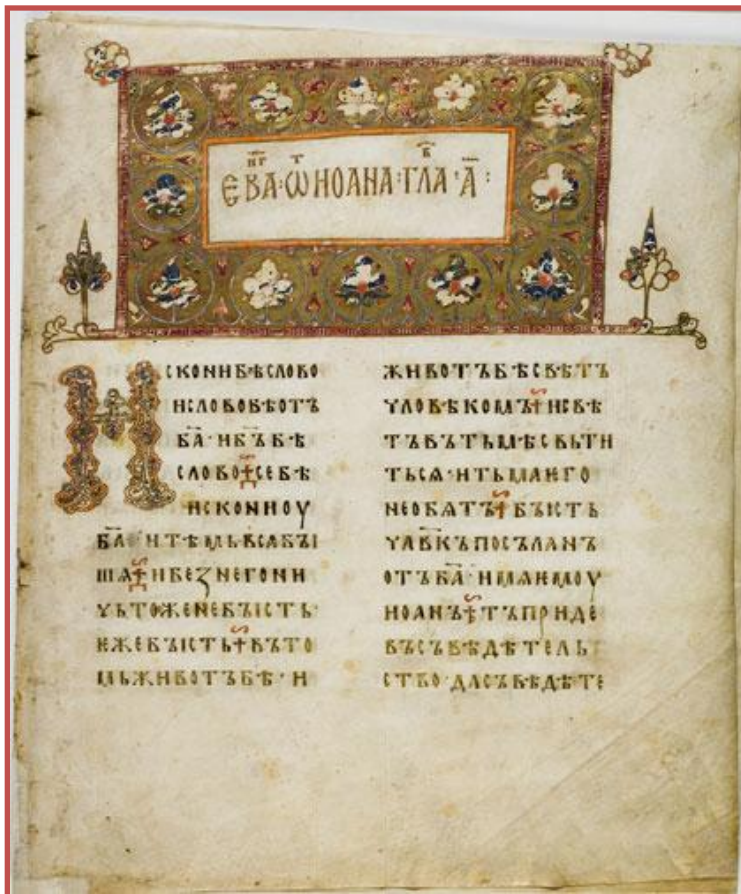 ЕВА҃· Ѿ ИОАНА · ГЛА · А҃ :
ИСКОНИБѢСЛОВО
ИСЛОВОБѢОТЪ
БА҃ · ИБ҃ЪБѢ
СЛОВО СЕБѢ
ИСКОНИОУ
БА҃ · ИТѢМЬВСѦБꙐ
ШѦ ИБЕЗНЕГОНИ
ЧЬТОЖЕНЕБꙐСТЬ ·
ЕЖЕБꙐСТЬ ВЪТО
МЬЖИВОТЪБѢ · И
ЖИВОТЪБѢСВѢТЪ
ЧЛОВѢКОМЪ ИСВѢ
ТЪВЪТЬМѢСВЬТИ
ТЬСѦ · ИТЬМАѤГО
НЕОБѦТЪ БꙐСТЬ
ЧЛ҃ВКЪПОСЪЛАНЪ
ОТЪБА҃ · ИМѦѤМОУ
ИОАНЪ ТЪПРИДЕ
ВЪСЪВѢДѢТЕЛЬ
СТВО · ДАСЪВѢДѢТЕ